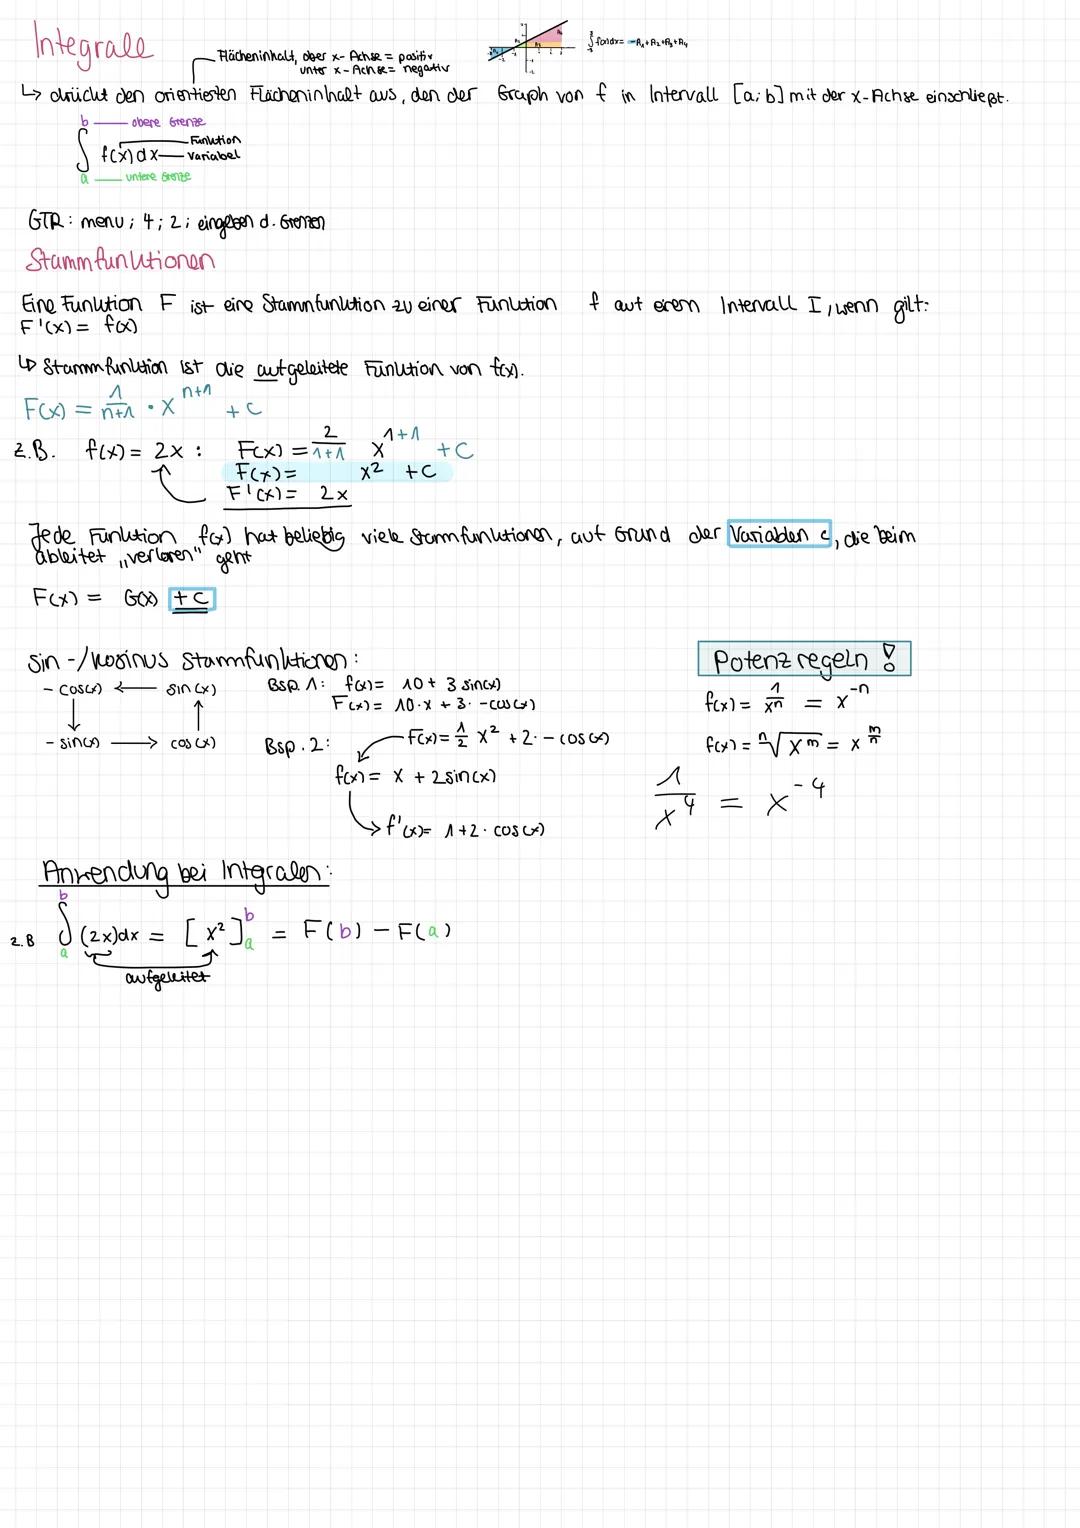 Integrale
Flächeninhalt, ober x-Achse = positiv
unter x-Achse = negativ
∫ f(x)dx = -A₁+A₂+A₃+A₄
↳ drückt den orientierten Flächeninhalt aus, den der Graph von f in Intervall [a;b] mit der x-Achse einschließt.
b — obere Grenze
∫ f(x)dx — Funktion
Variabel
a — untere Grenze
GTR: menu; 4; 2; eingeben d. Grenzen
Stammfunktionen
Eine Funktion F ist eine Stammfunktion zu einer Funktion f auf einem Intervall I, wenn gilt:
F'(x) = f(x)
↳ Stammfunktion ist die aufgeleitete Funktion von f(x).
F(x) = 1/(n+1) · x^(n+1) + C
z.B. f(x) = 2x : F(x) = 2/(1+1) x^(1+1) + C
F(x) = x² + C
F'(x) = 2x
Jede Funktion f(x) hat beliebig viele Stammfunktionen, auf Grund der Variablen c, die beim
ableitet „verloren" geht
F(x) = G(x) + C
sin-/kosinus Stammfunktionen:
- cos(x) ← sin(x)
↓ ↑
- sin(x) → cos(x)
Bsp. 1: f(x) = 10 + 3 sin(x)
F(x) = 10·x + 3· -cos(x)
Bsp. 2: F(x) = 1/2 x² + 2· - cos(x)
f(x) = x + 2sin(x)
f'(x) = 1+2· cos(x)
Potenzregeln !
f(x) = 1/xⁿ = x^-n
f(x) = ⁿ√x^m = x^(m/n)
1/x⁴ = x^-4
Anwendung bei Integralen:
z.B ∫ₐᵇ (2x)dx = [x²]ₐᵇ = F(b) - F(a)
aufgeleitet